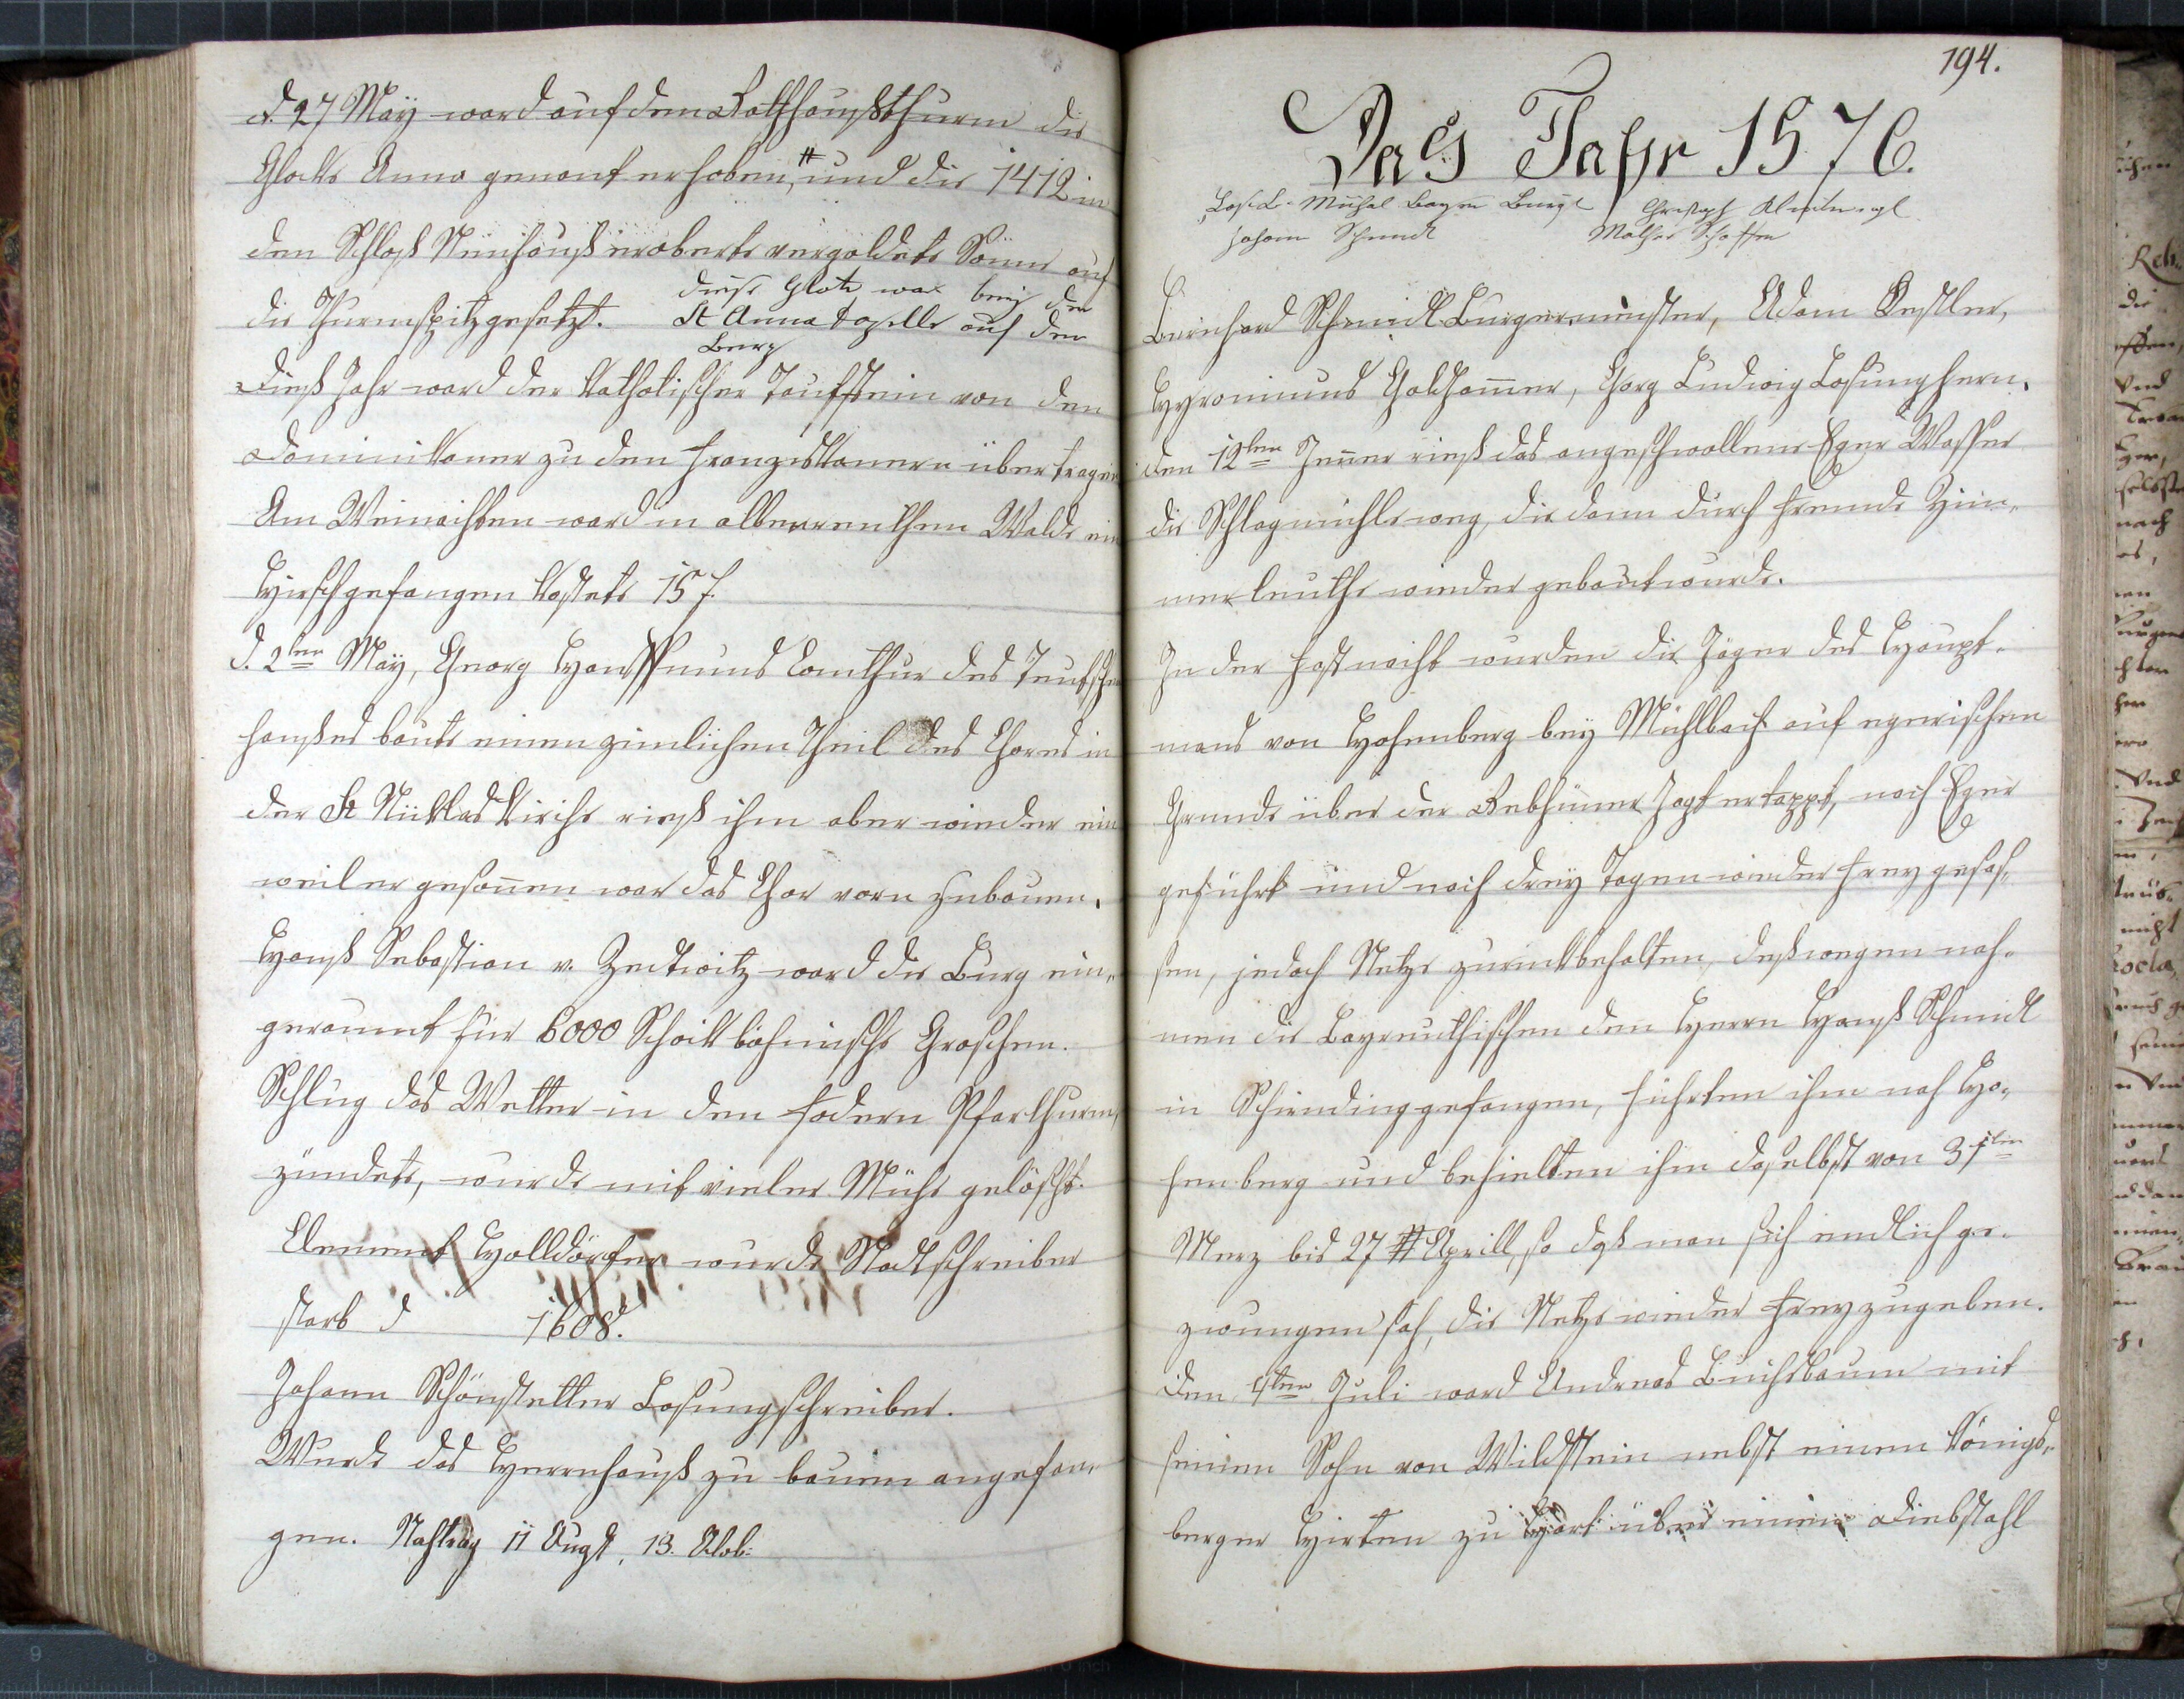 d. 27 Maÿ ward auf dem Rathhaußthurm die
Glocke Anna genant erhoben, # und die 1412 in
dem Schloß Neuhauß eroberte vergoldete Sonne auf
die Thurmspitz gesetzt. diese Glocke war beÿ der
St Anna Kapelle auf den
Berg
Dieß Jahr ward der Katholischer Taufstein von den
Dominikaner zu den Franziskanern übertragen
Am Weinachten ward in albenreuthem Walde ein
Hirsch gefangen kostete 15 f.
d. 2ten Maÿ, Georg Comthur des Teutschen
haußes baute einen zimlichen Theil des Chores in
der St Nicklas Kirche rieß ihm aber wieder ein
weil er gesonnen war das Chor vorn zubauen.
Hanß Sebastian v. Zedtwitz ward die Burg ein„
geraumt für 6000 Schock böhmische Groschen.
Schlug das Wetter in den fodern Pfarthurm,
zündete, wurde mit vieler Mühe gelöscht.
Clement Holldörfer wurde Stadtschreiber
starb d 1608.
Johann Schönstetter Losungschreiber.
Wurde das Herrenhauß zu bauen angefan„
gen. Nachtrag 11 Augst, 13. Octob:
194.
Das Jahr 1576.
Michal Bayer Burge Christoph
Johann Schmidl
Bernhard Schmidl Burgermeister, Adam Pestler,
Hyronimus Goldhammer, Georg Ludwig Losunghern.
den 12ten Jenner rieß das angeschwollene Eger Wasser
die Schlagmühle weg, die dann durch fremde Zim„
merleuthe wieder gebaut wurde.
In der Fastnacht wurden die Jäger des Haupt„
mans von Hohenberg beÿ Mühlbach auf egerischen
Grunde über der Rebhüner Jagt ertappt, nach Eger
geführt und nach dreÿ Tagen wieder freÿ gelas„
sen, jedoch Netze zurückbehalten, deßwegen nah„
men die Bayreuthischen den Herrn Hanß Schmidl
in Schirnding gefangen, führten ihm nah Ho„
henberg und behielten ihm daselbst von 31ten
Merz bis 27 # Aprill, so daß man sich endlich ge„
zwungen sah, die Netze wieder freÿ zugeben.
Den 4ten Juli ward Andreas Buchsbaum mit
seinem Sohn von Wildstein nebst einem Königs„
berger Hirten zu über einem Diebstahl